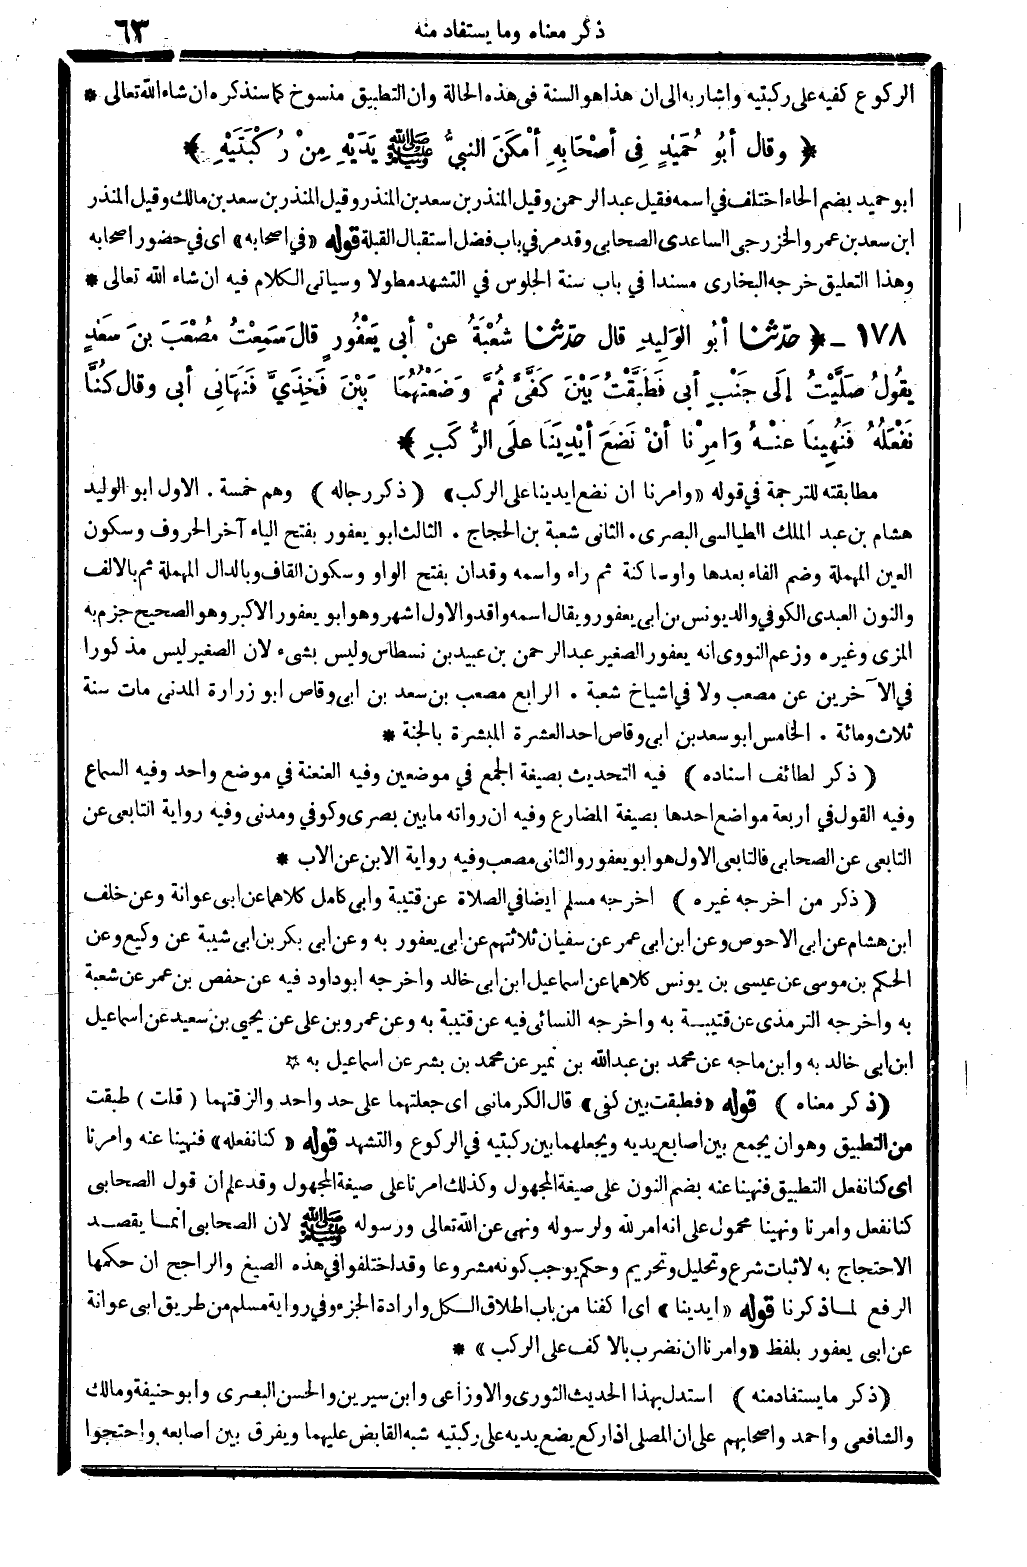 ذكر معناه وما يستفاد منه ٦٣
الركوع كفيه على ركبتيه واشار به الى ان هذا هو السنة فى هذه الحالة وان التطبيق منسوخ كما سنذكره ان شاء الله تعالى *
﴿ وقال أبُو حُمَيْدٍ فِى أصْحَابِهِ أمْكَنَ النبيُّ ﷺ يَدَيْهِ مِنْ رُكْبَتَيْهِ ﴾
ابو حميد بضم الحاء اختلف في اسمه فقيل عبد الرحمن وقيل المنذر بن سعد بن المنذر وقيل المنذر بن سعد بن مالك وقيل المنذر
ابن سعد بن عمرو الخزرجى الساعدى الصحابى وقد مر في باب فضل استقبال القبلة قوله «في اصحابه» اى في حضور اصحابه
وهذا التعليق خرجه البخارى مسندا في باب سنة الجلوس في التشهد مطولا وسياتى الكلام فيه ان شاء الله تعالى *
١٧٨ ـ ﴿ حدّثنا أبُو الوَلِيدِ قال حدّثنا شُعْبَةُ عنْ أبى يَعْفُورٍ قالَ سَمِعْتُ مُصْعَبَ بنَ سَعْدٍ
يقُولُ صَلَّيْتُ إلَى جَنْبِ أبى فَطَبَّقْتُ بَيْنَ كَفَّىَّ ثُمَّ وَضَعْتُهُمَا بَيْنَ فَخِذَيَّ فَنَهَانِى أبى وقال كُنَّا
نَفْعَلُهُ فَنُهِينَا عنْهُ وَامِرْنا أنْ نَضَعَ أيْدِيَنَا علَى الرُّكَبِ ﴾
مطابقته للترجمة في قوله «وامرنا ان نضع ايدينا على الركب» ( ذكر رجاله ) وهم خمسة . الاول ابو الوليد
هشام بن عبد الملك الطيالسى البصرى . الثانى شعبة بن الحجاج . الثالث ابو يعفور بفتح الياء آخر الحروف وسكون
العين المهملة وضم الفاء بعدها واو ساكنة ثم راء واسمه وقدان بفتح الواو وسكون القاف وبالدال المهملة ثم بالالف
والنون العبدى الكوفي والد يونس بن ابى يعفور ويقال اسمه واقد والاول اشهر وهو ابو يعفور الاكبر وهو الصحيح جزم به
المزى وغيره وزعم النووى انه يعفور الصغير عبد الرحمن بن عبيد بن نسطاس وليس بشىء لان الصغير ليس مذكورا
في الآخرين عن مصعب ولا في اشياخ شعبة . الرابع مصعب بن سعد بن ابى وقاص ابو زرارة المدنى مات سنة
ثلاث ومائة . الخامس ابو سعد بن ابى وقاص احد العشرة المبشرة بالجنة *
( ذكر لطائف اسناده ) فيه التحديث بصيغة الجمع في موضعين وفيه العنعنة في موضع واحد وفيه السماع
وفيه القول في اربعة مواضع احدها بصيغة المضارع وفيه ان رواته ما بين بصرى وكوفي ومدنى وفيه رواية التابعى عن
التابعى عن الصحابى فالتابعى الاول هو ابو يعفور والثانى مصعب وفيه رواية الابن عن الاب *
( ذكر من اخرجه غيره ) اخرجه مسلم ايضا في الصلاة عن قتيبة وابى كامل كلاهما عن ابى عوانة وعن خلف
ابن هشام عن ابى الاحوص وعن ابن ابى عمر عن سفيان ثلاثتهم عن ابى يعفور به وعن ابى بكر بن ابى شيبة عن وكيع وعن
الحكم بن موسى عن عيسى بن يونس كلاهما عن اسماعيل ابن ابى خالد واخرجه ابو داود فيه عن حفص بن عمر عن شعبة
به واخرجه الترمذى عن قتيبة به واخرجه النسائى فيه عن قتيبة به وعن عمرو بن على عن يحيى بن سعيد عن اسماعيل
ابن ابى خالد به وابن ماجه عن محمد بن عبدالله بن نمير عن محمد بن بشر عن اسماعيل به ☆
( ذكر معناه ) قوله «فطبقت بين كفى» قال الكرمانى اى جعلتهما على حد واحد والزقتهما ( قلت ) طبقت
من التطبيق وهو ان يجمع بين اصابع يديه ويجعلهما بين ركبتيه في الركوع والتشهد قوله « كنا نفعله» فنهينا عنه وامرنا
اى كنا نفعل التطبيق فنهينا عنه بضم النون على صيغة المجهول وكذلك امرنا على صيغة المجهول وقد علم ان قول الصحابى
كنا نفعل وامرنا ونهينا محمول على انه امر لله ولرسوله ونهى عن الله تعالى ورسوله ﷺ لان الصحابى انما يقصد
الاحتجاج به لاثبات شرع وتحليل وتحريم وحكم يوجب كونه مشروعا وقد اختلفوا في هذه الصيغ والراجح ان حكمها
الرفع لما ذكرنا قوله « ايدينا » اى اكفنا من باب اطلاق الكل وارادة الجزء وفي رواية مسلم من طريق ابى عوانة
عن ابى يعفور بلفظ «وامرنا ان نضرب بالاكف على الركب » *
( ذكر ما يستفاد منه ) استدل بهذا الحديث الثورى والاوزاعى وابن سيرين والحسن البصرى وابو حنيفة ومالك
والشافعى واحمد واصحابهم على ان المصلى اذا ركع يضع يديه على ركبتيه شبه القابض عليهما ويفرق بين اصابعه واحتجوا